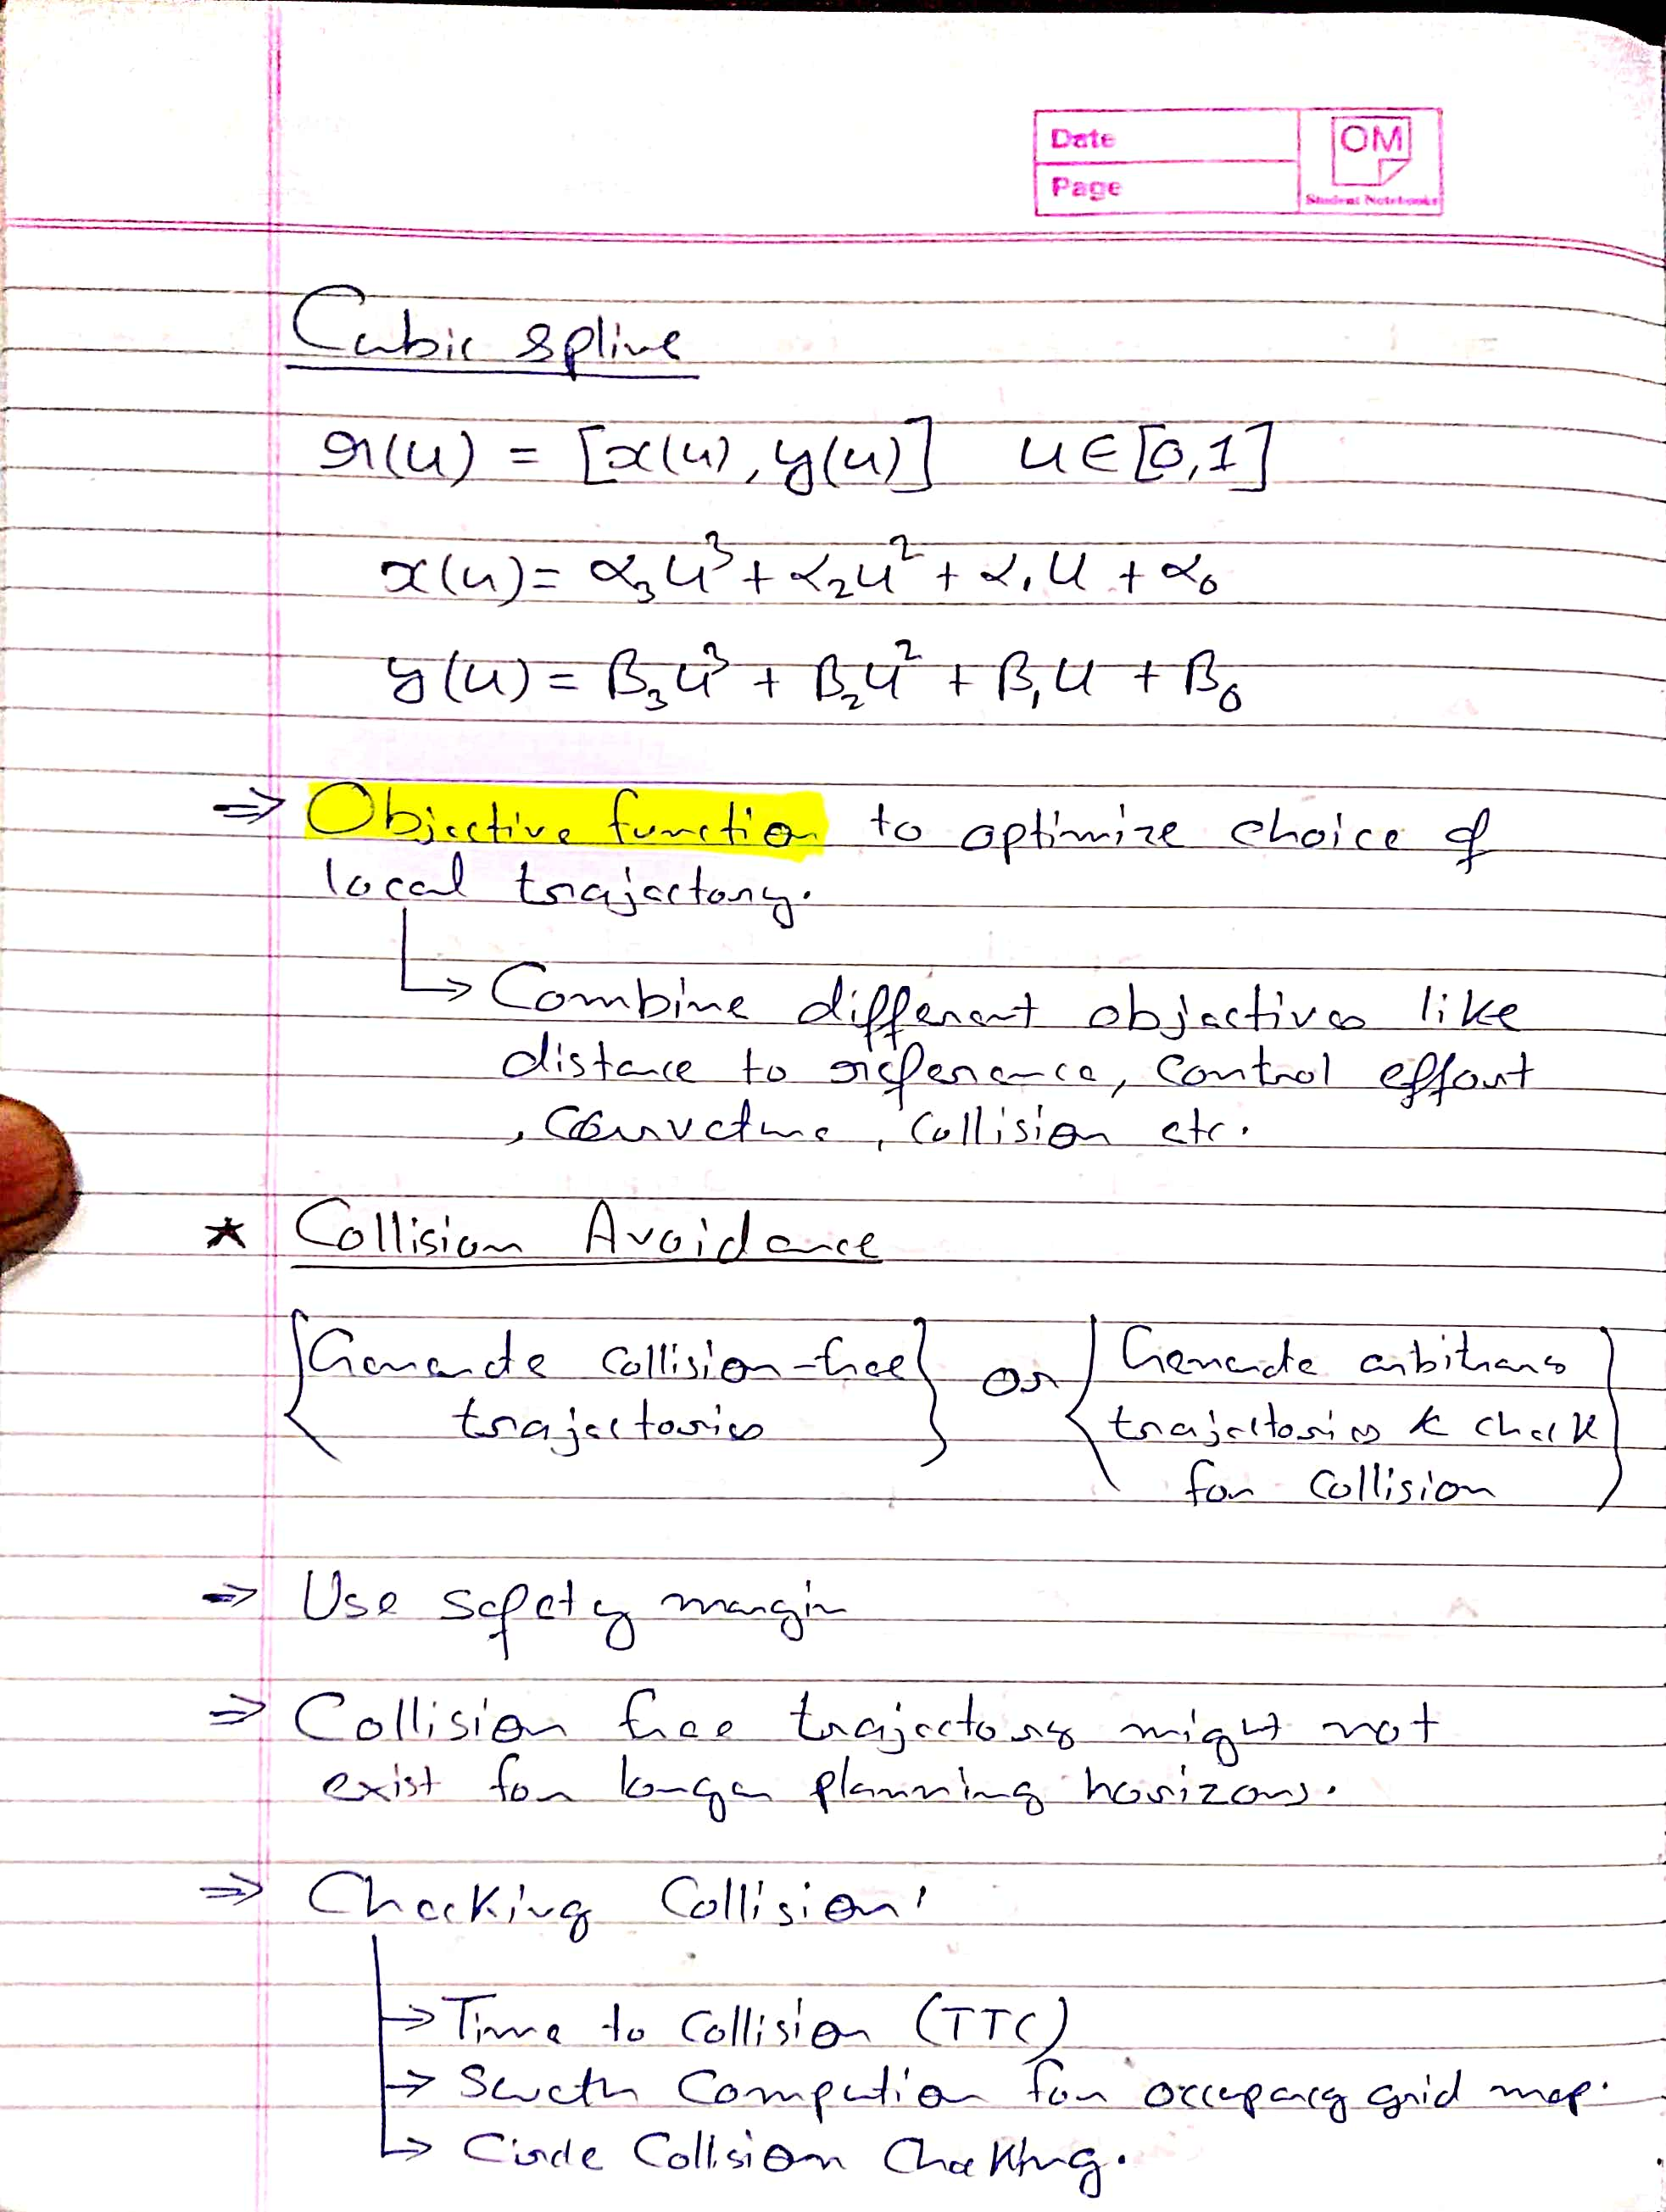 Date
Page
OM
Student Notebooks
Cubic spline
r(u) = [x(u), y(u)] u ∈ [0,1]
x(u) = α₃u³ + α₂u² + α₁u + α₀
y(u) = β₃u³ + β₂u² + β₁u + β₀
⇒ Objective function to optimize choice of
local trajectory.
↳ Combine different objectives like
distance to reference, control effort
, curvature, collision etc.
★ Collision Avoidance
{Generate collision-free} or {Generate arbitrary
trajectories trajectories & check
for collision
⇒ Use safety margin
⇒ Collision free trajectory might not
exist for longer planning horizons.
⇒ Checking Collision:
→ Time to Collision (TTC)
→ Swath Computation for occupancy grid map.
→ Circle Collision Checking.